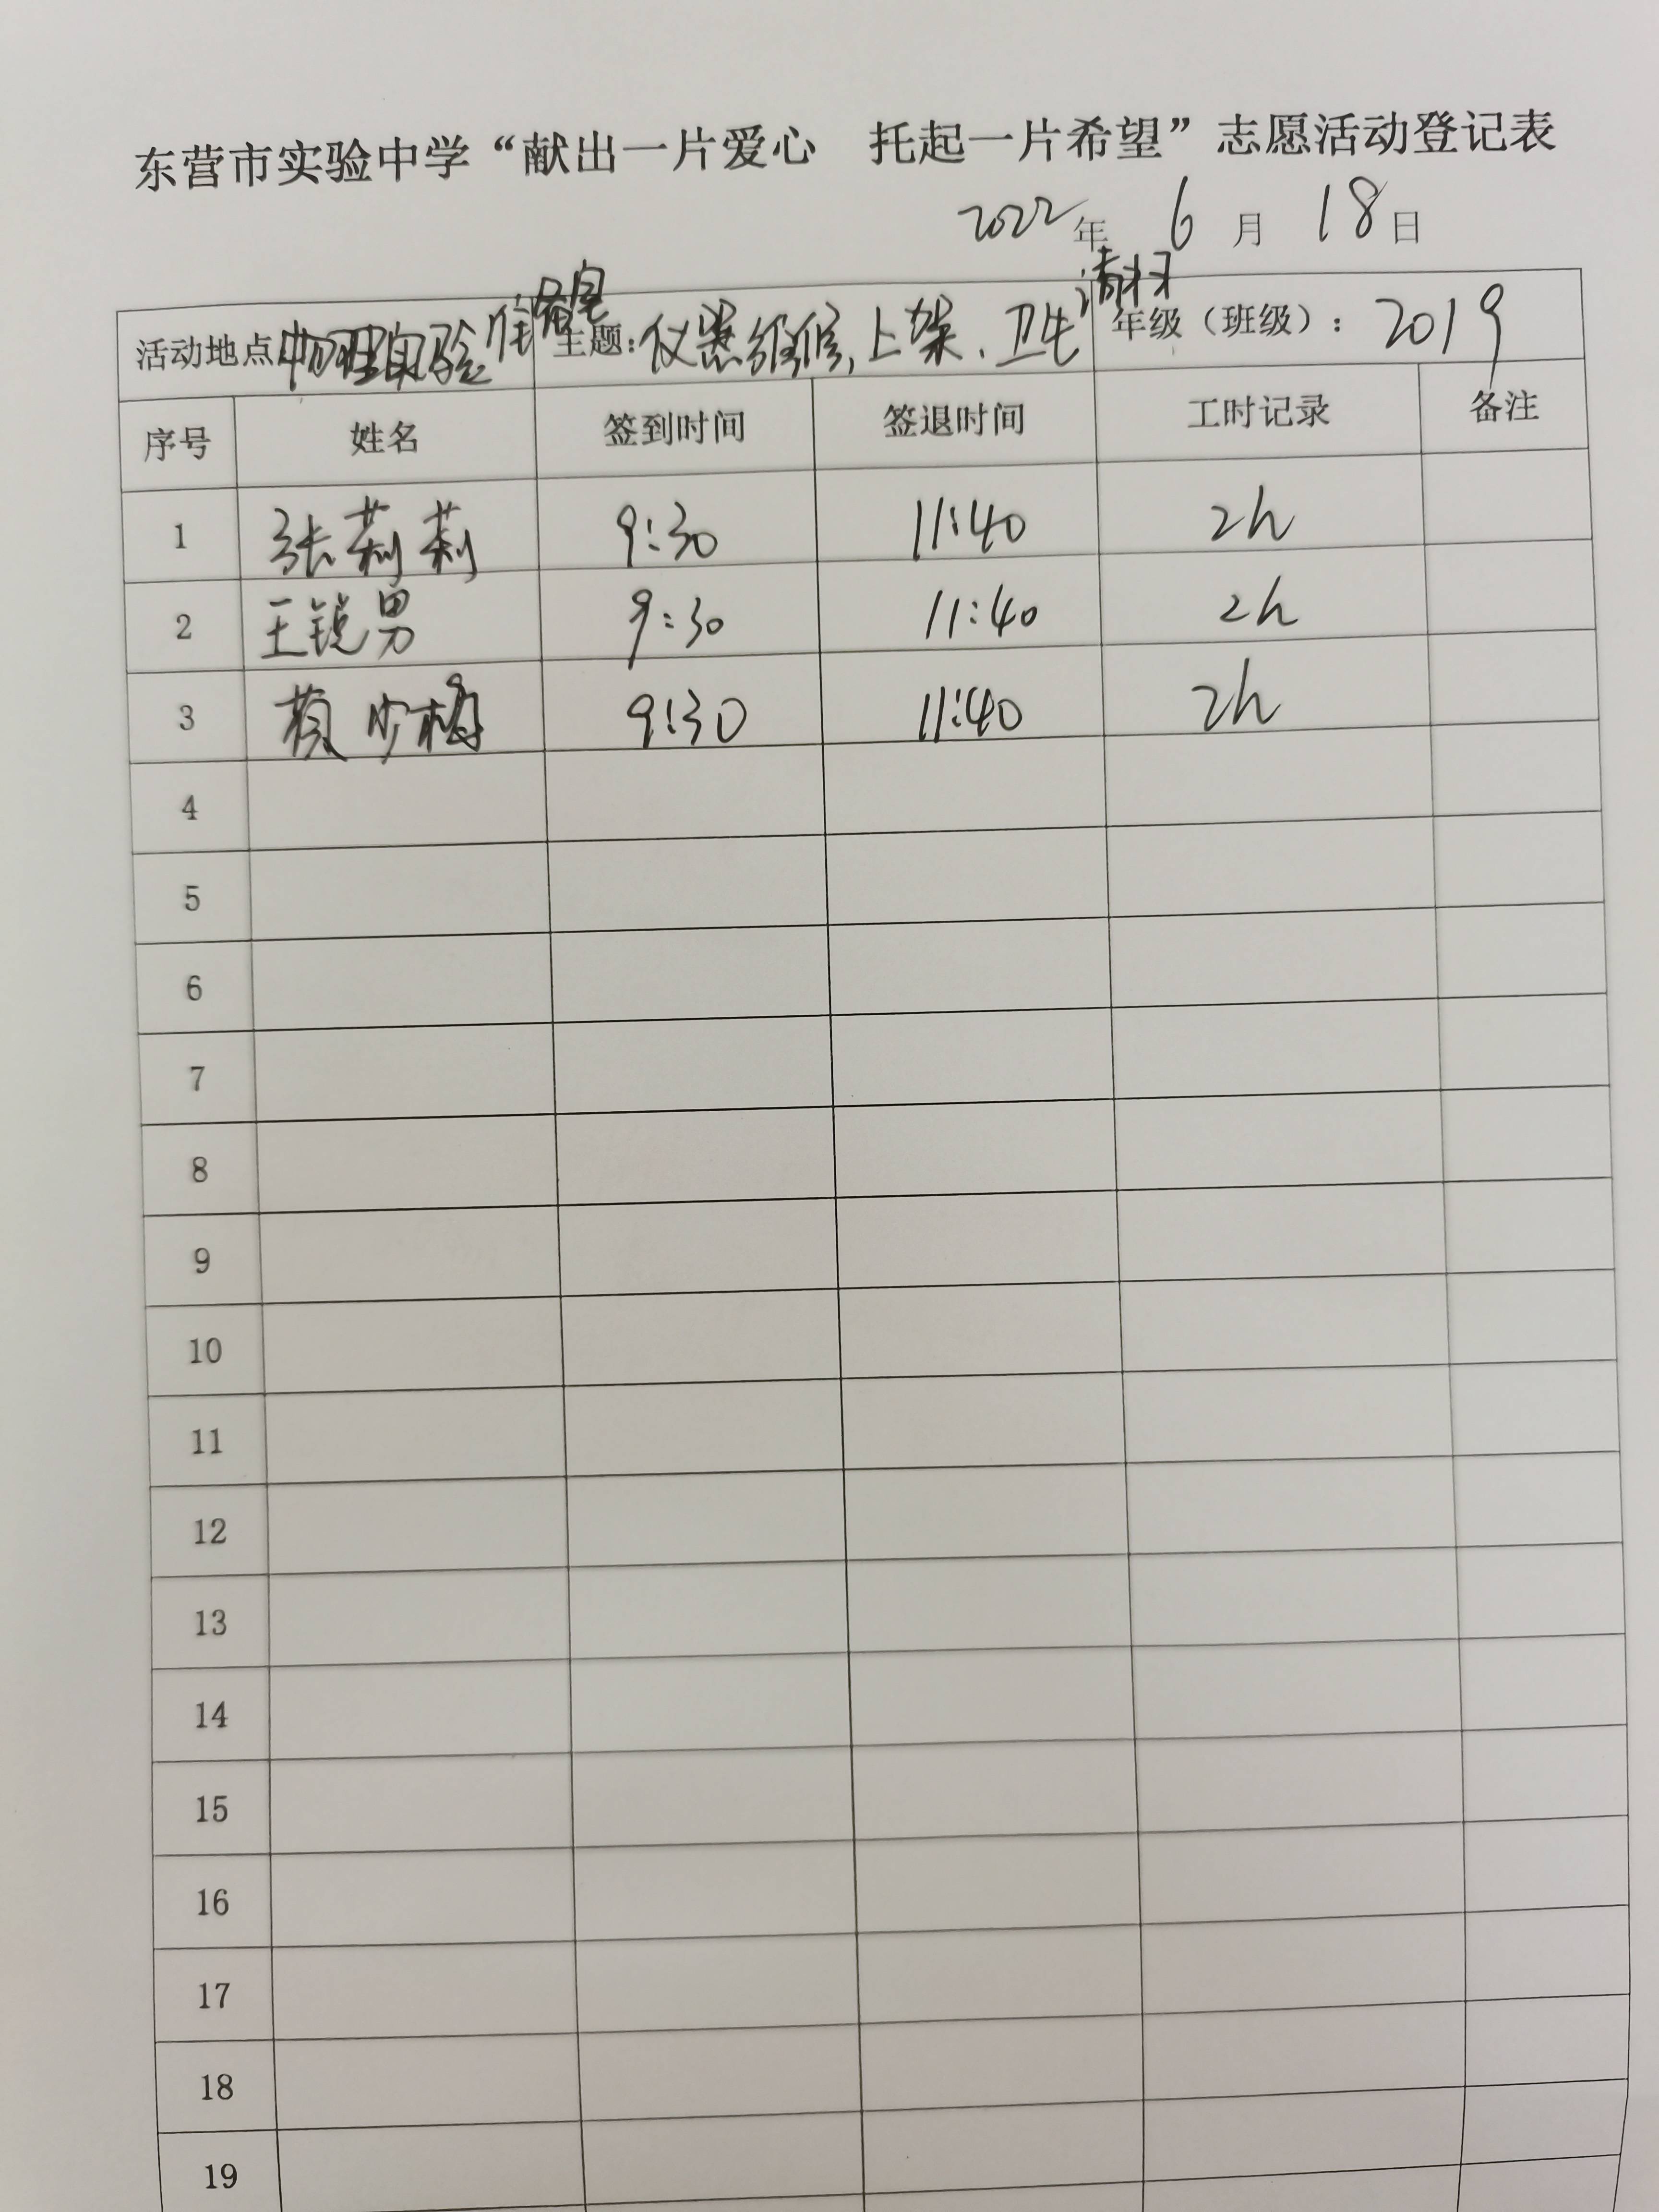 东营市实验中学“献出一片爱心 托起一片希望”志愿活动登记表
2022年 6月 18日
活动地点 物理实验准备室 主题：仪器维修，上架、卫生清扫 年级（班级）：2019
序号 姓名 签到时间 签退时间 工时记录 备注
1 张莉莉 9:30 11:40 2h
2 王锐男 9:30 11:40 2h
3 少梅 9:30 11:40 2h
4
5
6
7
8
9
10
11
12
13
14
15
16
17
18
19